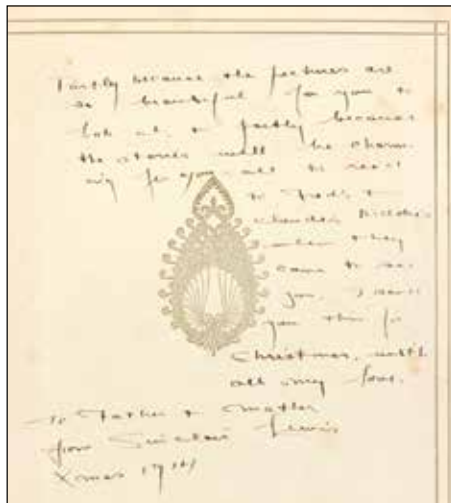 Partly because the pictures are
so beautiful for you to
look at, & partly because
the stories will be charm-
ing for you all to read
to Fred's &
Claude's kiddies
when they
come to see
you, I send
you this for
Christmas, with
all my love.
To Father & Mother
from Sinclair Lewis
Xmas